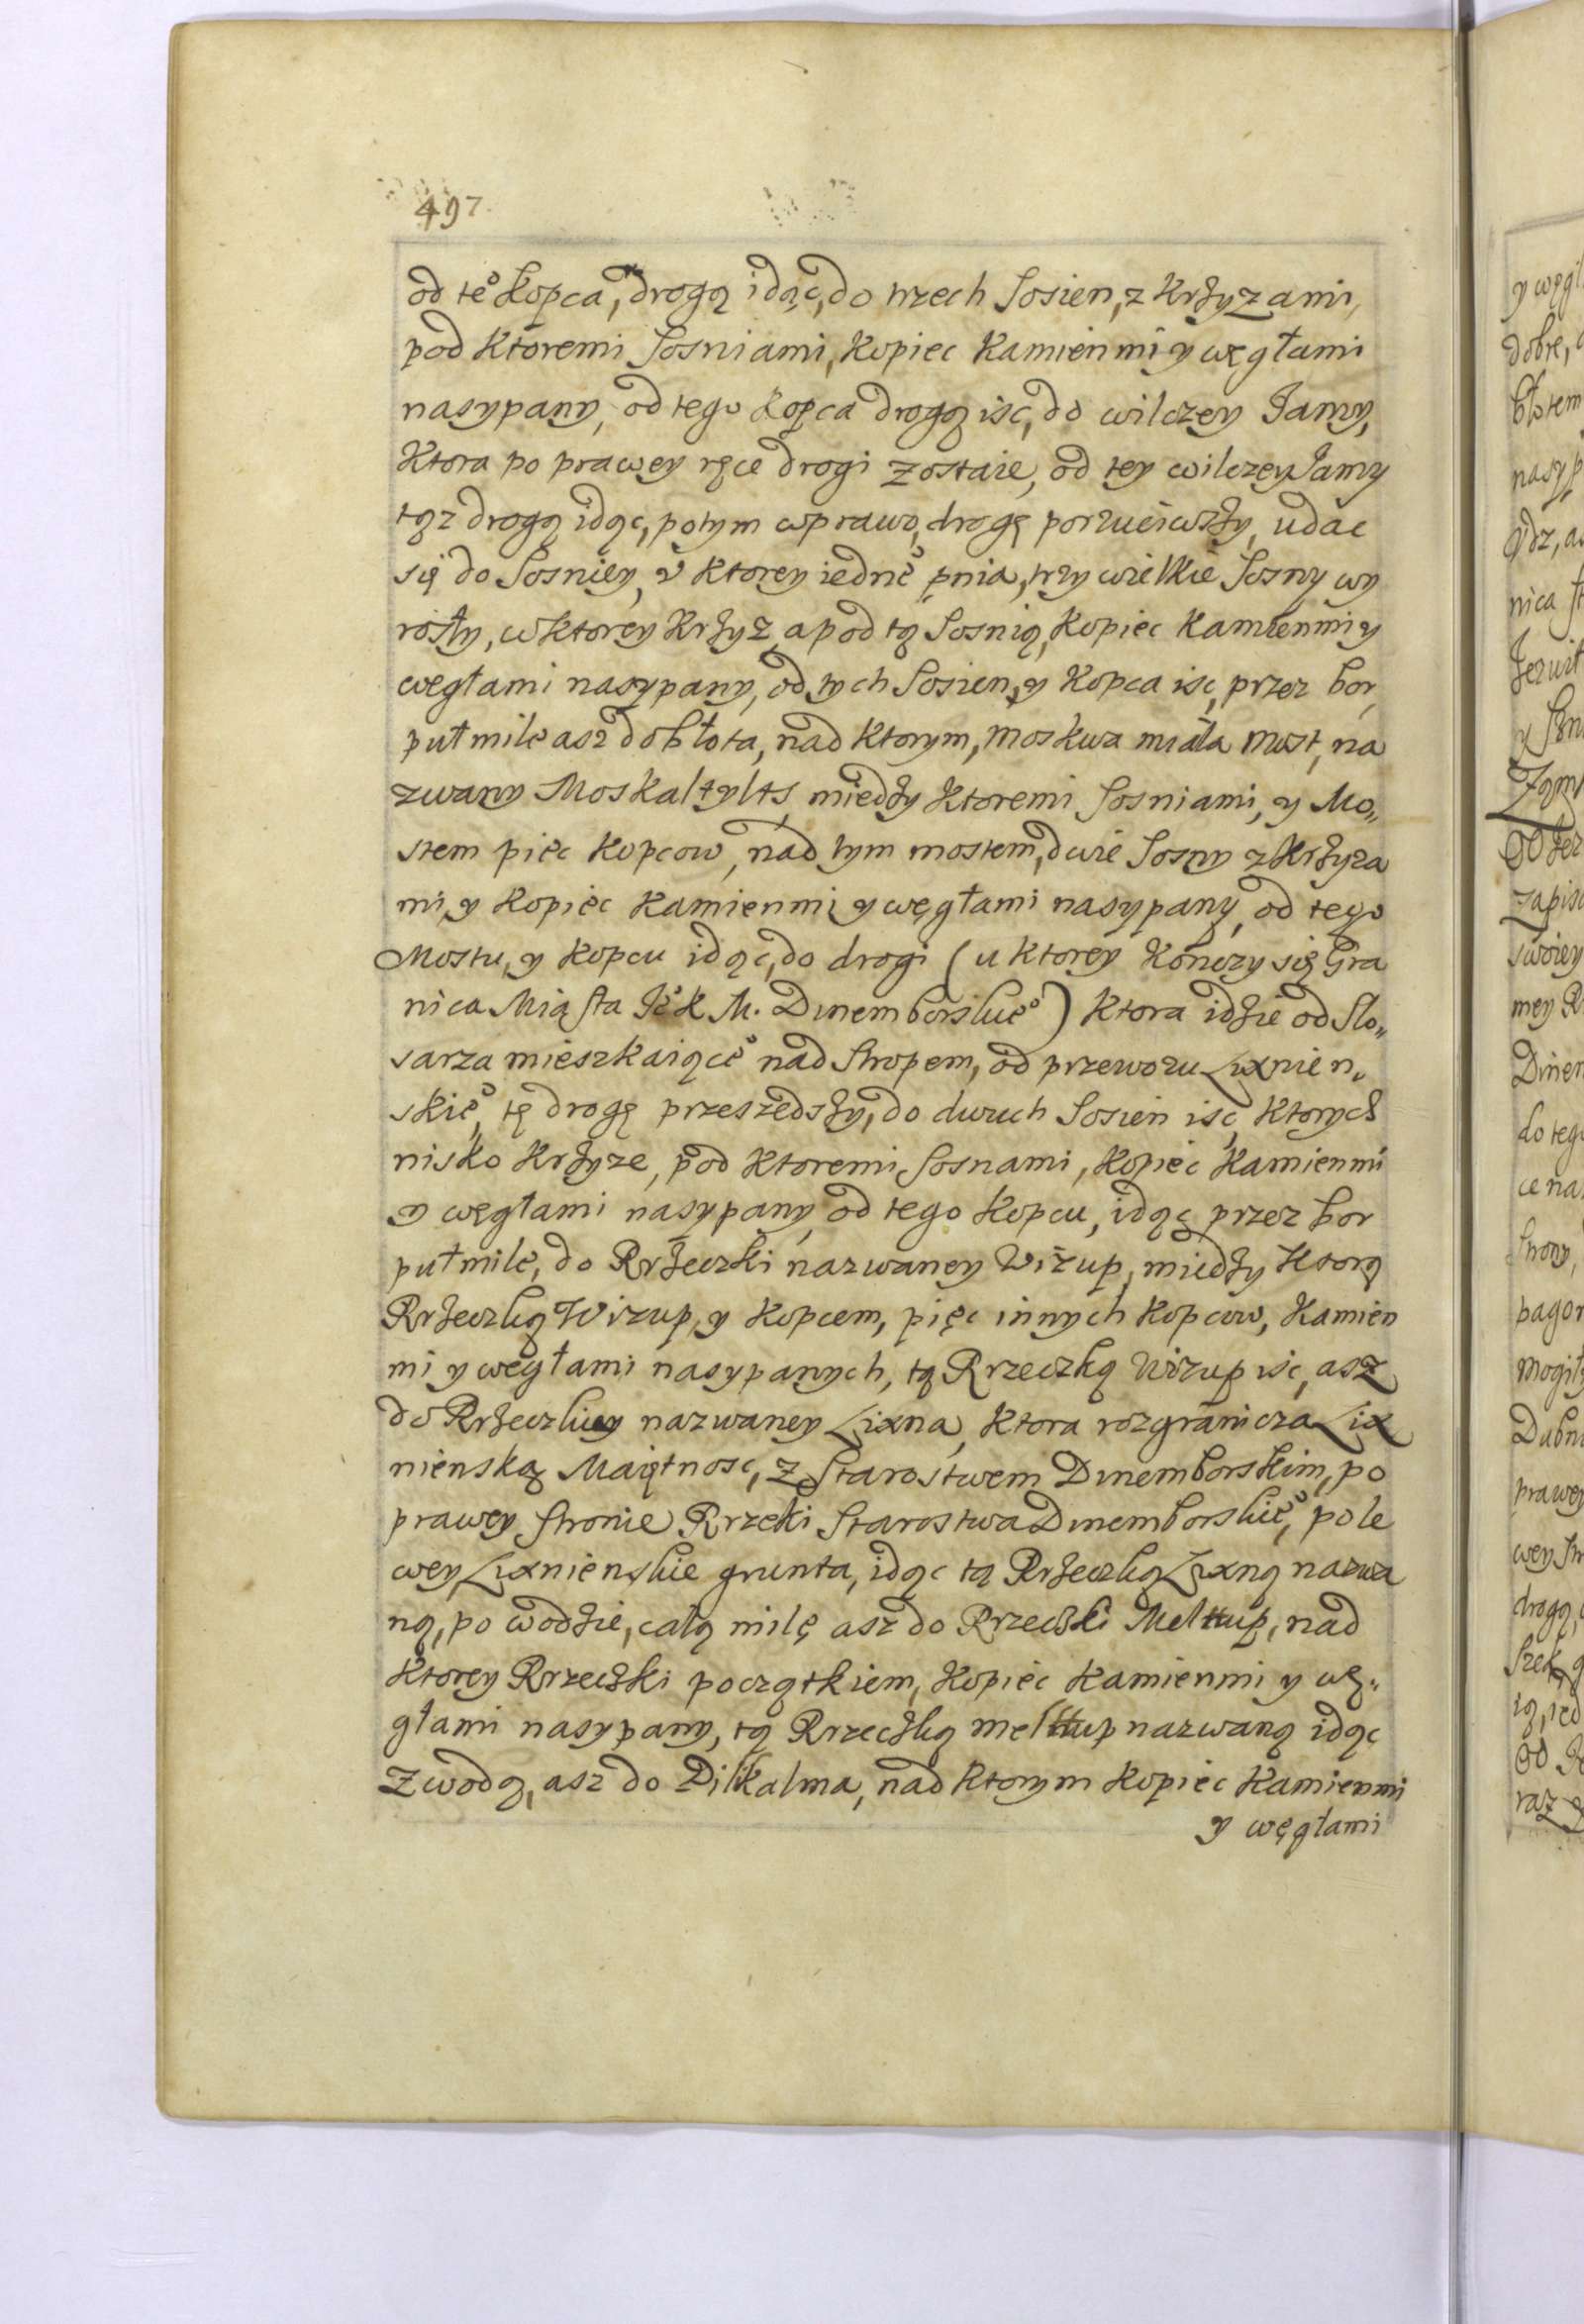 497
od te° kopca, drogą idąc, do trzech Sosien, z krzyzami,
pod ktoremi Sosniami, kopiec kamienmi y węgłami
nasypany, od tego kopca drogą isc, do wilczey Jamy,
ktora po prawey ręce drogi zostaie, od tey wilczey Jamy
tąz drogą idąc, potym wprawo, drogę porzuciwszy, udac
się do Sosniey, v ktorey iedne° pnia, trzy wielkie Sosny wy
rosły, w ktorey krzyz, a pod tą Sosnią, kopiec kamienmi y
węgłami nasypany, od tych Sosien, y kopca isc, przez bor,
puł mile asz do błota, nad ktorym, Moskwa miała most, na
zwany Moskaltylts, miedzy ktoremi Sosniami, y Mo„
stem pięc kopcow, nad tym mostem, dwie Sosny z krzyza
mi, y kopiec kamienmi, y węgłami nasypany, od tego
Mostu, y kopcu idąc, do drogi (u ktorey konczy się Gra
nica Miasta Je° K M. Dinemborskie°) ktora idzie od Slo„
sarza mieszkaiące° nad Stropem, od przewozu Lixnien„
skie°, tę drogę przeszedszy, do dwuch Sosien isc, ktorych
nisko krzyze, pod ktoremi Sosnami, kopiec kamienmi
y węgłami nasypany, od tego kopcu, idąc przez bor
puł mile, do Rrzeczki nazwaney Wizup, miedzy ktorą
Rrzeczką Wizup, y kopcem, pięc innych kopcow, kamien
mi y węgłami nasypanych, tą Rrzeczką Wizup isc, asz
do Rrzeczki nazwaney Lixna, ktora rozgranicza Lix
nienską Maiętnosc, z Starostwem Dinemborskim, po
prawey stronie Rrzeki Starostwa Dinemborskie°, po le
wey Lixnienskie grunta, idąc tą Rrzeczką Lixną nazwa
ną, po wodzie, całą milę asz do Rrzeczki Meltup, nad
ktorey Rrzeczki początkiem, kopiec kamienmi y wę„
głami nasypany, tą Rrzeczką meltup nazwaną idąc
z wodą, asz do Dilikalma, nad ktorym kopiec kamienmi
y węgłami